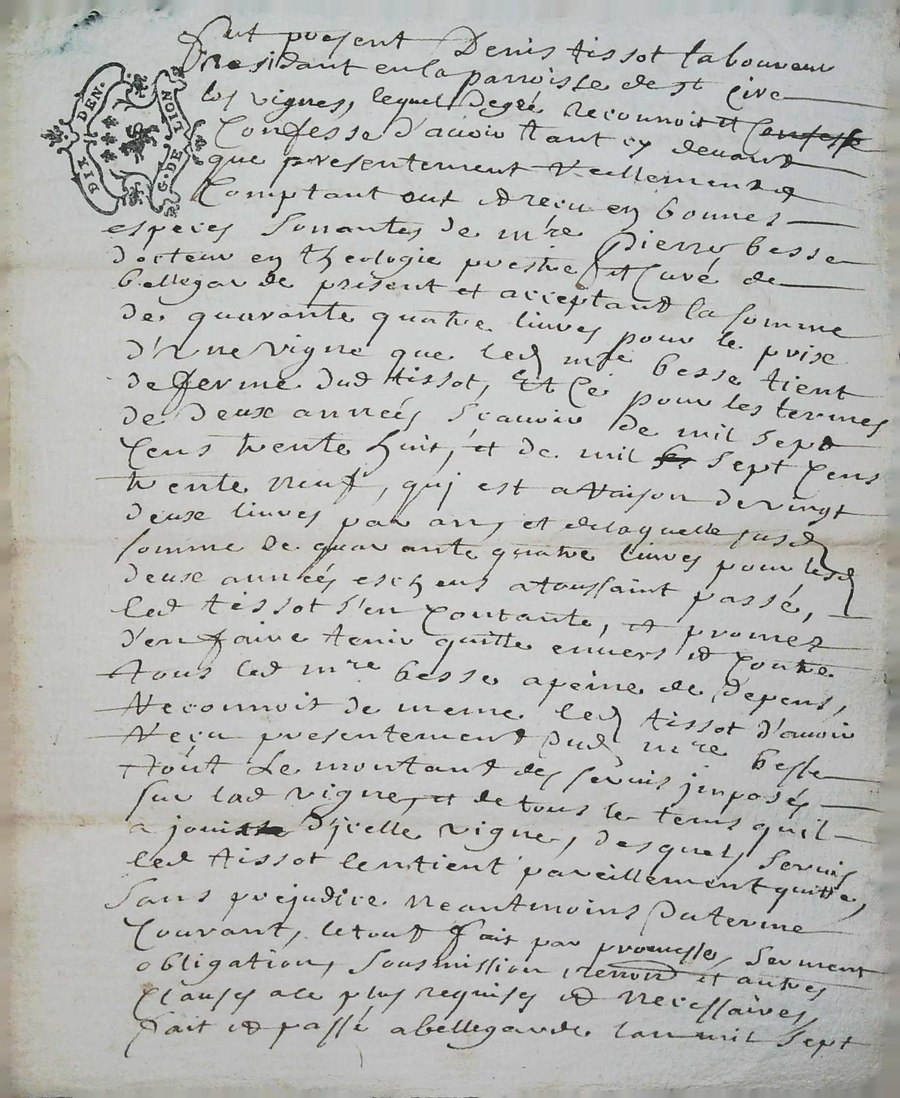 DIX DEN.
G. DE NOIT
fut present Denis tissot laboureur
residant en la parroisse de st cire
les vignes, lequel degré reconnoit et confesse
Confesse d'avoir tant cy devant
que presentement reellement &
Comptant eut et recu en bonnes
especes sonantes de mre pierre besse
docteur en theologie prestre et Curé de
bellegarde present et acceptant la somme
de quarante quatre livres pour le prix
d'Une vigne que led mre besse tient
de ferme dud tissot, et Ce pour les termes
de deux années, scavoir de mil sept
Cens trente huit, et de mil sept Cens
trente neuf, qui est a raison de vingt
deux livres par an, et de laquelle susd
somme de quarante quatre livres pour lesd
deux années escheus a toussaint passé,
led tissot s'en Contante, et promet
d'en faire tenir quitte envers et Contre
tous led mre besse a peine de depens,
Reconnoit de meme led tissot d'avoir
Reçu presentement dud mre besse
tout Le montant des servis imposés
sur lad vigne, et de tous le tems qu'il
a joui d'icelle vigne, desquels servis
led tissot len tient pareillement quitte,
sans prejudice neantmoins du terme
Courant, le tout fait par promesse, serment
obligation, sousmission, renon et autres
Clauses a ce plus requises et necessaires,
fait et passé a bellegarde lan mil sept